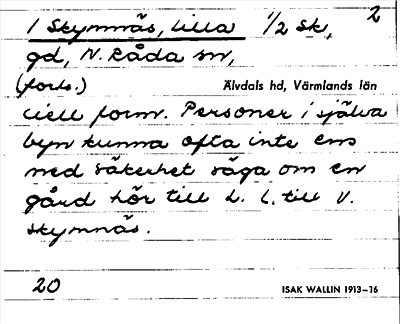 1 Skymnäs, lilla 1/2 sk, 2
gd, N. Råda sn,
(forts.) Älvdals hd, Värmlands län
ciell form. Personer i själva
byn kunna ofta inte ens
med säkerhet säga om en
gård hör till L. l. till V.
Skymnäs.
20 ISAK WALLIN 1913–16